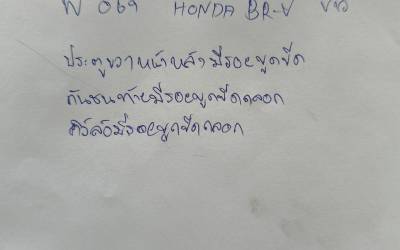 W 069 HONDA BR-V ขาว
ประตูขวาหน้าหลังมีรอยขูดขีด
กันชนท้ายมีรอยขูดขีดถลอก
สเกิร์ตมีรอยขูดขีดถลอก